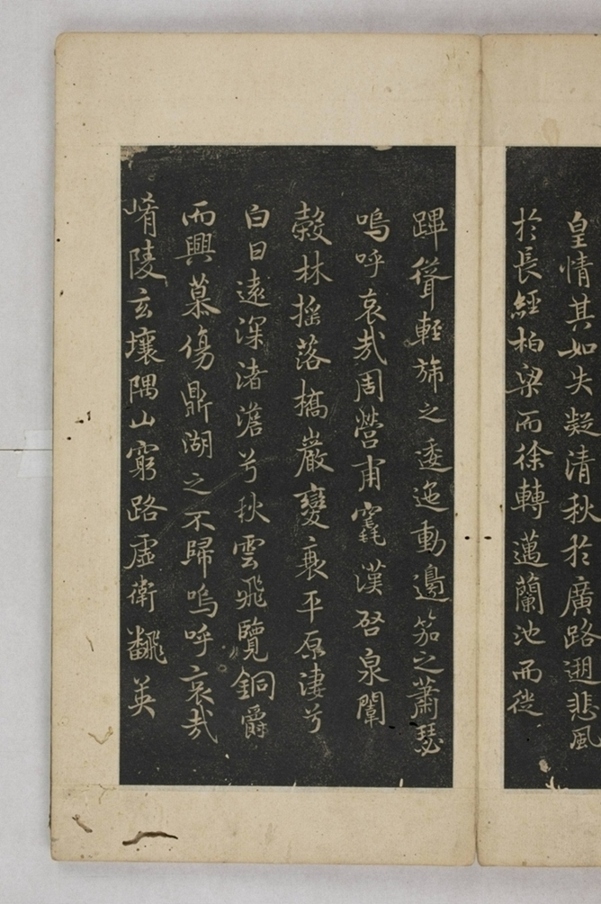 皇情其如失凝清秋於廣路遡悲風
於長經柏梁而徐轉邁蘭池而從
蹕聳輕旆之逶迤動邊笳之蕭瑟
嗚呼哀哉周營甫竁漢啓泉闈
穀林摇落橋巖變衰平原淒兮
白日遠深渚澹兮秋雲飛覽銅爵
而興慕傷鼎湖之不歸嗚呼哀哉
崤陵玄壤隅山窮路虛衛飜英